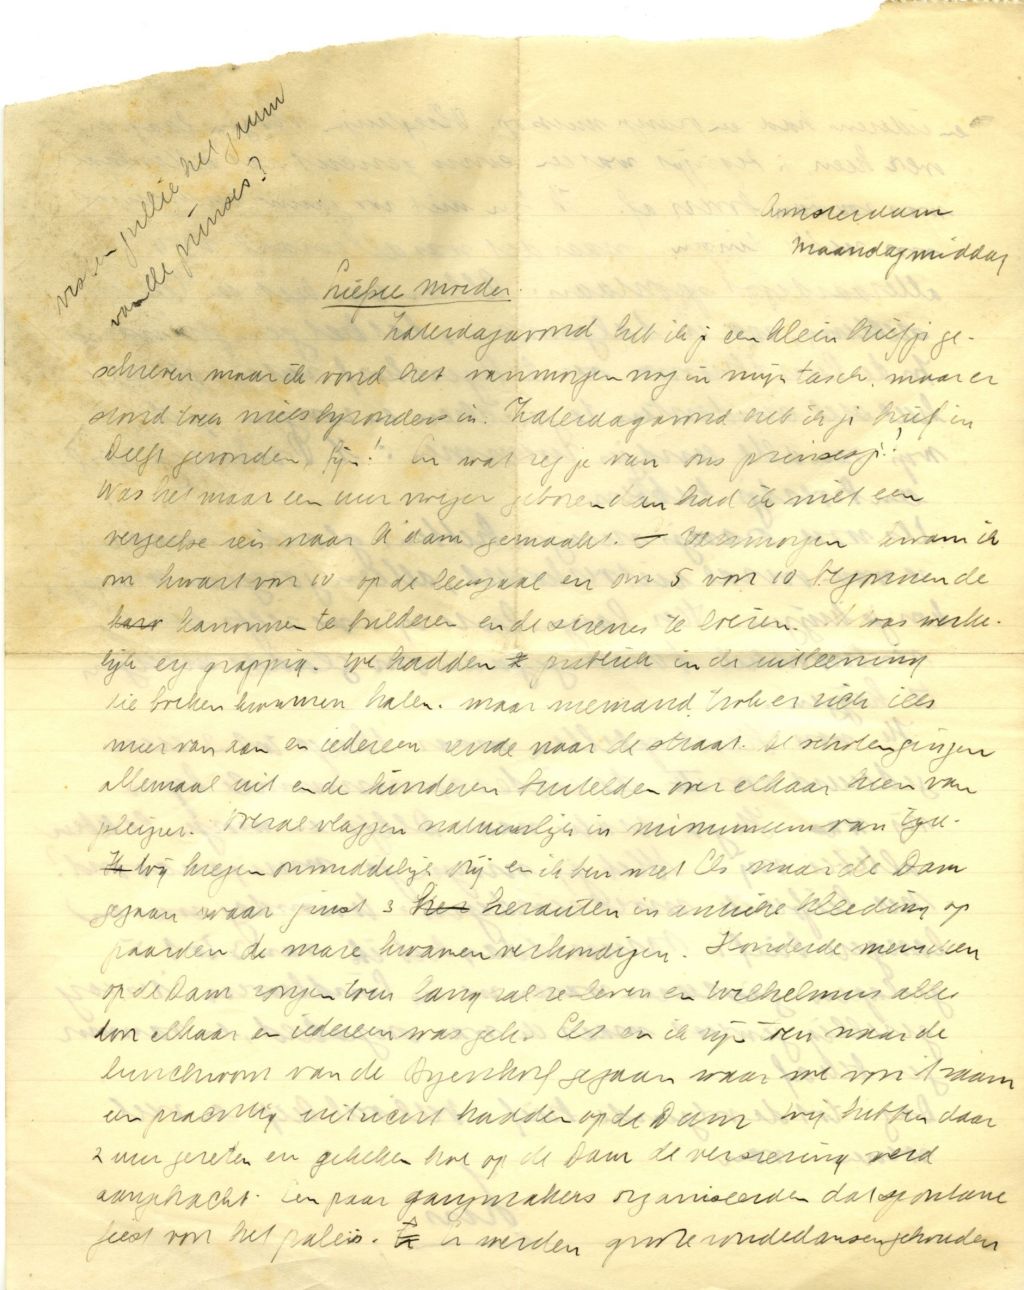 wisten jullie het gauw
van de prinses?
Amsterdam
Maandagmiddag
Liefste moeder.
Zaterdagavond heb ik je een klein briefje ge-
schreven maar ik vond het vanmorgen nog in mijn tasch, maar er
stond toch niets byzonders in. Zaterdagavond heb ik je brief in
Delft gevonden, fijn! En wat zeg je van ons prinsesje!
Was het maar een uur vroeger geboren dan had ik niet een
vergeefse reis naar A'dam gemaakt. Vanmorgen kwam ik
om kwart voor 10 op de leeszaal en om 5 voor 10 begonnen de
kanonnen te bulderen en de sirenes te loeien. 't Was werke-
lijk erg grappig. We hadden publiek in de uitleening
die boeken kwamen halen. maar niemand trok er zich iets
meer van aan en iedereen rende naar de straat. de scholen gingen
allemaal uit en de kinderen buitelden over elkaar heen van
plezier. Overal vlaggen natuurlijk in minimum van tijd.
Wij kregen onmiddelijk vrij en ik ben met Els naar de Dam
gegaan waar juist 3 herauten in antieke kleeding op
paarden de mare kwamen verkondigen. Honderde menschen
op de Dam zongen toen lang zal ze leven en Wilhelmus alles
door elkaar en iedereen was gek. Els en ik zijn toen naar de
lunchroom van de Byenkorf gegaan waar we voor 't raam
een prachtig uitzicht hadden op de Dam Wij hebben daar
2 uur gezeten en gekeken hoe op de Dam de versiering werd
aangebracht. Een paar gangmakers organiseerden dat spontane
feest voor het paleis. Er werden groote rondedansen gehouden